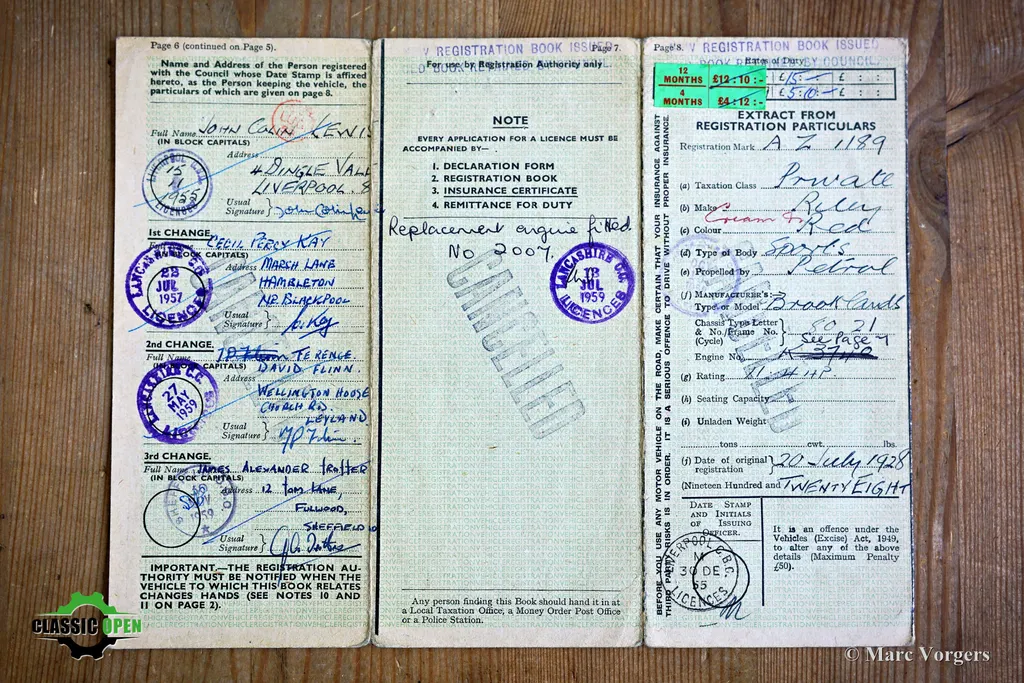 Page 6 (continued on Page 5).
Name and Address of the Person registered
with the Council whose Date Stamp is affixed
hereto, as the Person keeping the vehicle, the
particulars of which are given on page 8.
Full Name JOHN COLIN LEWIS
(IN BLOCK CAPITALS)
Address
4 DINGLE VALE
LIVERPOOL. 8
Usual
Signature
LIVERPOOL
15
1955
LICENCES
1st CHANGE.
CECIL PERCY KAY
(IN BLOCK CAPITALS)
Address MARSH LANE
HAMBLETON
NR BLACKPOOL
Usual
Signature C. Kay
LANCASHIRE C.C.
22
JUL
1957
LICENCES
2nd CHANGE.
Full Name TERENCE
(IN BLOCK CAPITALS) DAVID FLINN.
Address
WELLINGTON HOUSE
CHURCH RD.
LEYLAND
Usual
Signature
LANCASHIRE C.C.
27
MAY
1959
LICENCES
3rd CHANGE.
Full Name JAMES ALEXANDER TROTTER
(IN BLOCK CAPITALS)
Address 12 TOM LANE,
FULWOOD,
SHEFFIELD 10
Usual
Signature
IMPORTANT.—THE REGISTRATION AU-
THORITY MUST BE NOTIFIED WHEN THE
VEHICLE TO WHICH THIS BOOK RELATES
CHANGES HANDS (SEE NOTES 10 AND
11 ON PAGE 2).
CANCELLED
CLASSIC OPEN
REGISTRATION BOOK ISSUED
Page 7.
For use by Registration Authority only
NOTE
EVERY APPLICATION FOR A LICENCE MUST BE
ACCOMPANIED BY—
1. DECLARATION FORM
2. REGISTRATION BOOK
3. INSURANCE CERTIFICATE
4. REMITTANCE FOR DUTY
Replacement engine fitted.
No 2007.
LANCASHIRE C.C.
18
JUL
1959
LICENCES
CANCELLED
Any person finding this Book should hand it in at
a Local Taxation Office, a Money Order Post Office
or a Police Station.
Page 8.
REGISTRATION BOOK ISSUED
BY COUNCIL
Rates of Duty
12
MONTHS £12:10:-
£15:-
£ : :
4
MONTHS £4:12:-
£5:10:-
£ : :
EXTRACT FROM
REGISTRATION PARTICULARS
Registration Mark AZ 1189
(a) Taxation Class Private
(b) Make Riley
Cream &
(c) Colour Red
(d) Type of Body Sports
(e) Propelled by Petrol
(f) MANUFACTURER'S:—
Type or Model Brooklands
Chassis Type Letter
& No./Frame No. 8021
(Cycle) See Page 7
Engine No.
(g) Rating H.P.
(h) Seating Capacity
(i) Unladen Weight
tons cwt. lbs.
(j) Date of original
registration 20 July 1928
(Nineteen Hundred and TWENTY EIGHT
DATE STAMP
AND INITIALS
OF ISSUING
OFFICER.
LIVERPOOL C.B.C.
M
30 DE
55
LICENCES
It is an offence under the
Vehicles (Excise) Act, 1949,
to alter any of the above
details (Maximum Penalty
£50).
CANCELLED
BEFORE YOU USE ANY MOTOR VEHICLE ON THE ROAD, MAKE CERTAIN THAT YOUR INSURANCE AGAINST
THIRD PARTY RISKS IS IN ORDER. IT IS A SERIOUS OFFENCE TO DRIVE WITHOUT PROPER INSURANCE.
© Marc Vorgers